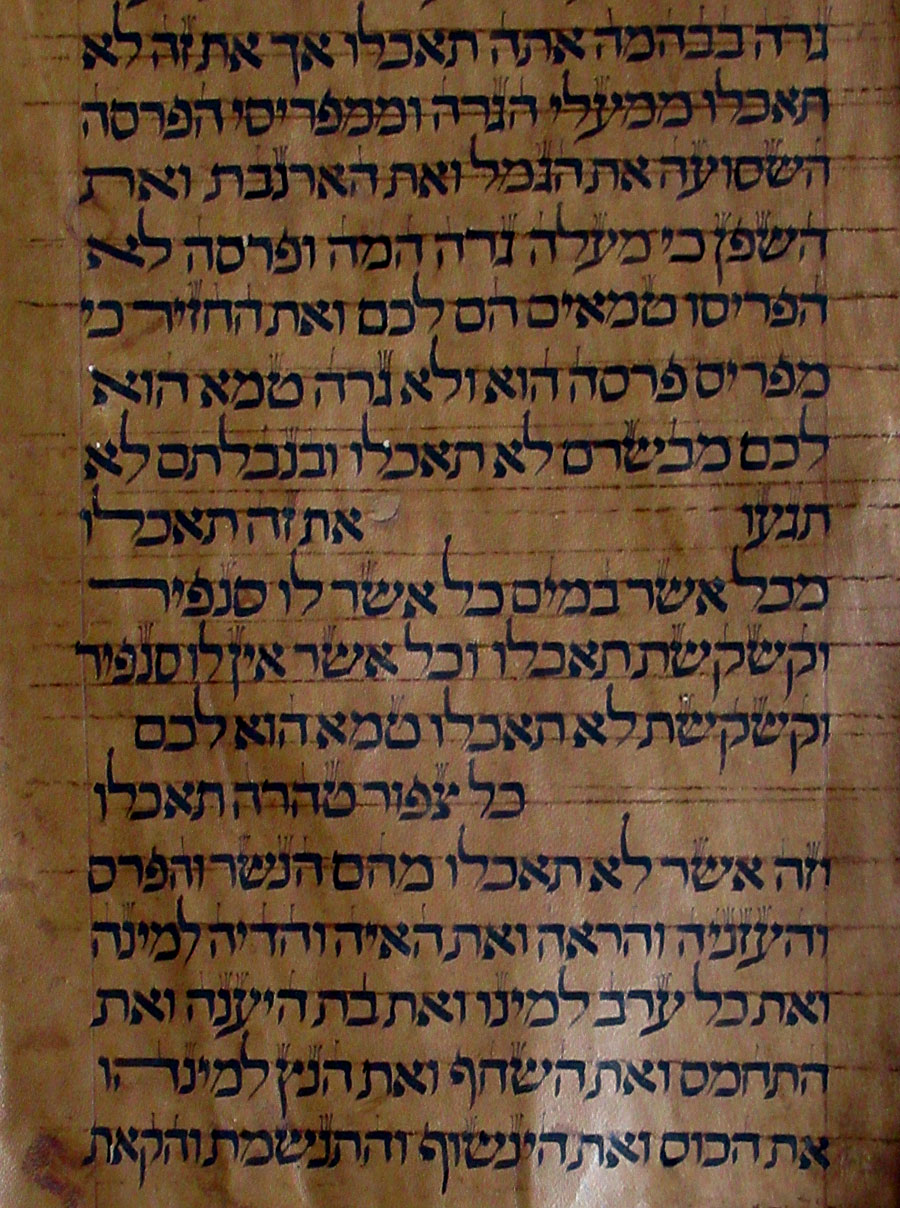 גרה בבהמה אתה תאכלו אך את זה לא
תאכלו ממעלי הגרה וממפריסי הפרסה
השסועה את הגמל ואת הארנבת ואת
השפן כי מעלה גרה המה ופרסה לא
הפריסו טמאים הם לכם ואת החזיר כי
מפריס פרסה הוא ולא גרה טמא הוא
לכם מבשרם לא תאכלו ובנבלתם לא
תגעו את זה תאכלו
מכל אשר במים כל אשר לו סנפיר
וקשקשת תאכלו וכל אשר אין לו סנפיר
וקשקשת לא תאכלו טמא הוא לכם
כל צפור טהרה תאכלו
וזה אשר לא תאכלו מהם הנשר והפרס
והעזניה והראה ואת האיה והדיה למינה
ואת כל ערב למינו ואת בת היענה ואת
התחמס ואת השחף ואת הנץ למינהו
את הכוס ואת הינשוף והתנשמת והקאת